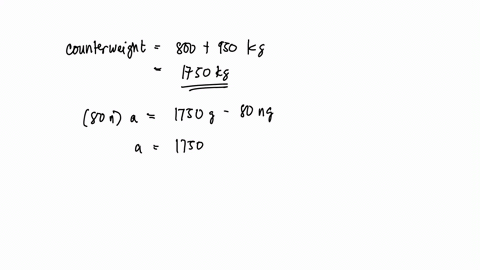 counterweight = 800 + 950 kg
= 1750 kg
(80n) a = 1750 g - 80 ng
a = 1750